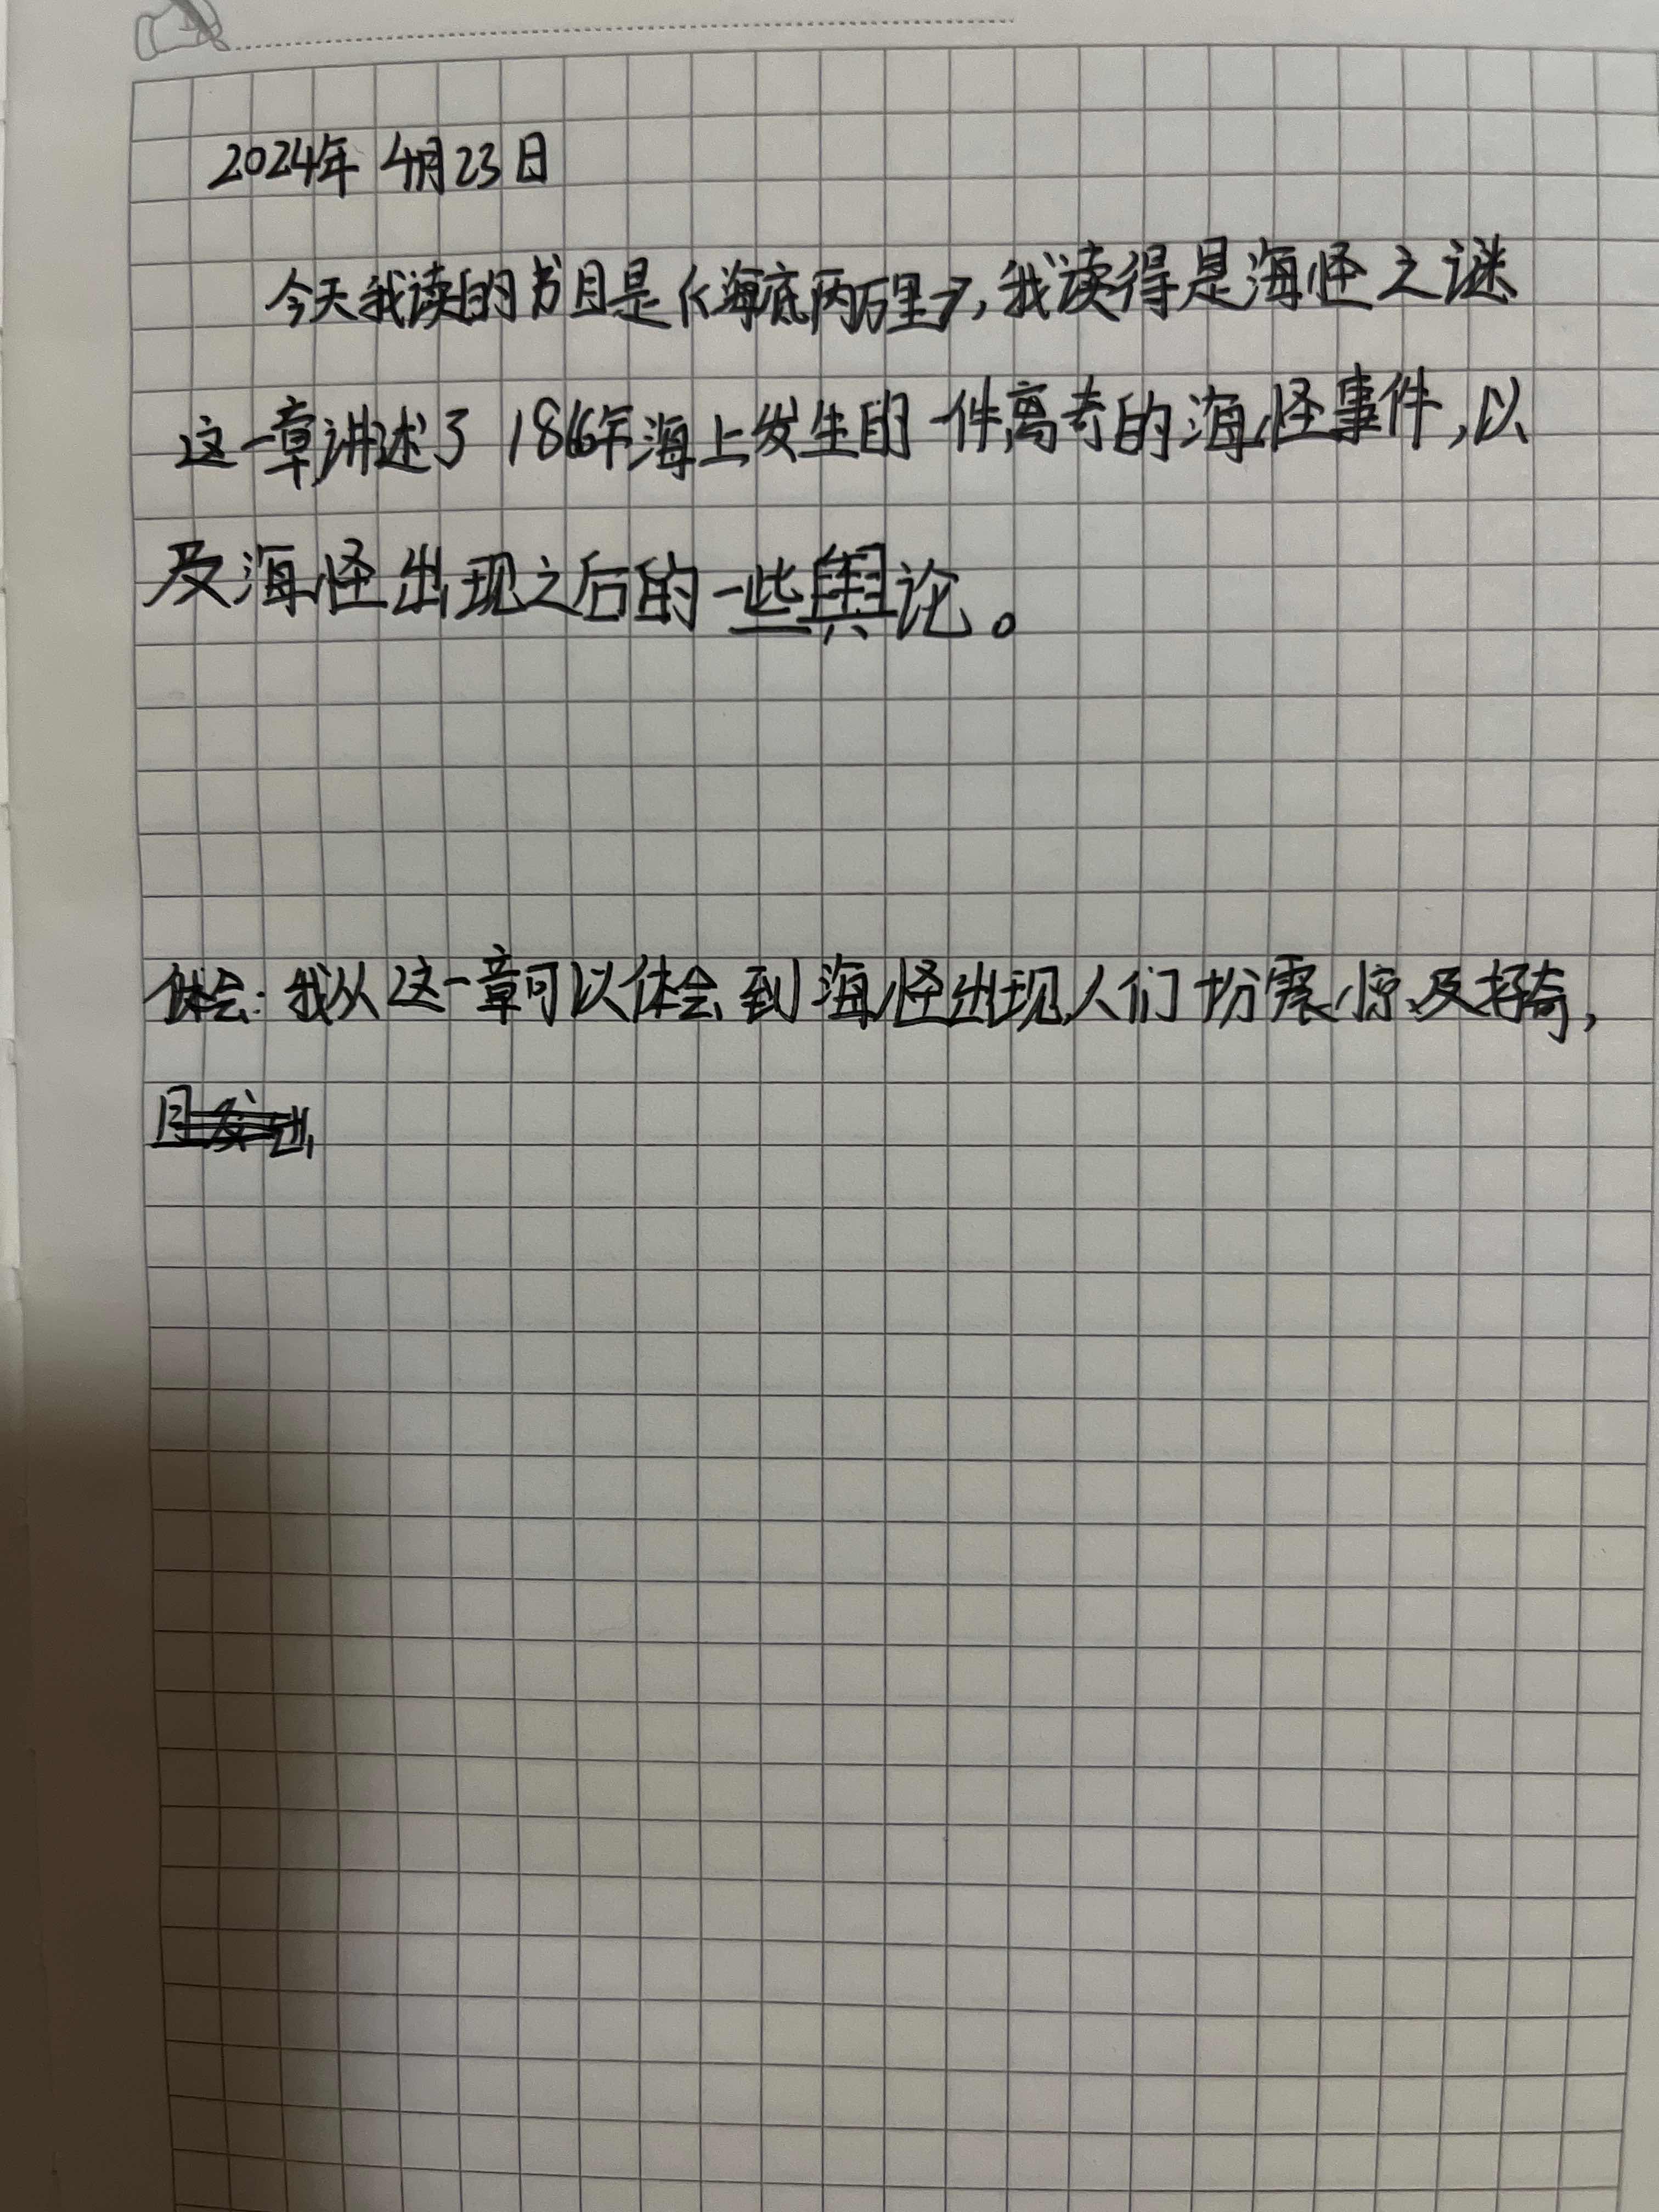 2024年4月23日
今天我读的书目是《海底两万里》,我读得是海怪之谜
这一章讲述了1866年海上发生的一件离奇的海怪事件,以
及海怪出现之后的一些舆论。
体会:我从这一章可以体会到海怪出现人们十分震惊及好奇,